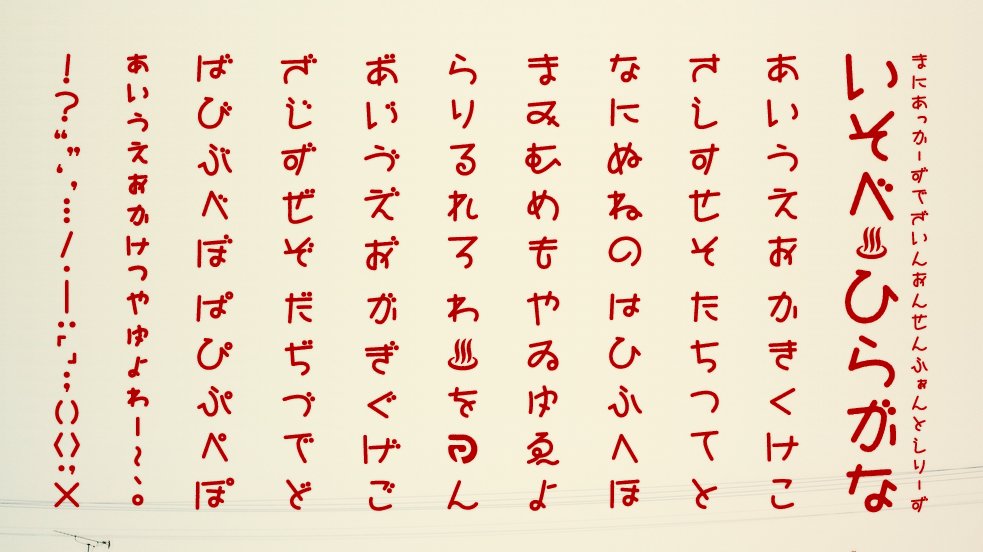 まにあっかーずでざいんおんせんふぉんとしりーず
いそべ♨ひらがな
あいうえおかきくけこ
さしすせそたちつてと
なにぬねのはひふへほ
まみむめもやゐゆゑよ
らりるれろわ♨をん
あ゙い゙ゔえ゙お゙がぎぐげご
ざじずぜぞだぢづでど
ばびぶべぼぱぴぷぺぽ
ぁぃぅぇぉゕゖっゃゅょゎー〜、。
！？“”‘’…／・―‥「」：；（）〈〉：；×